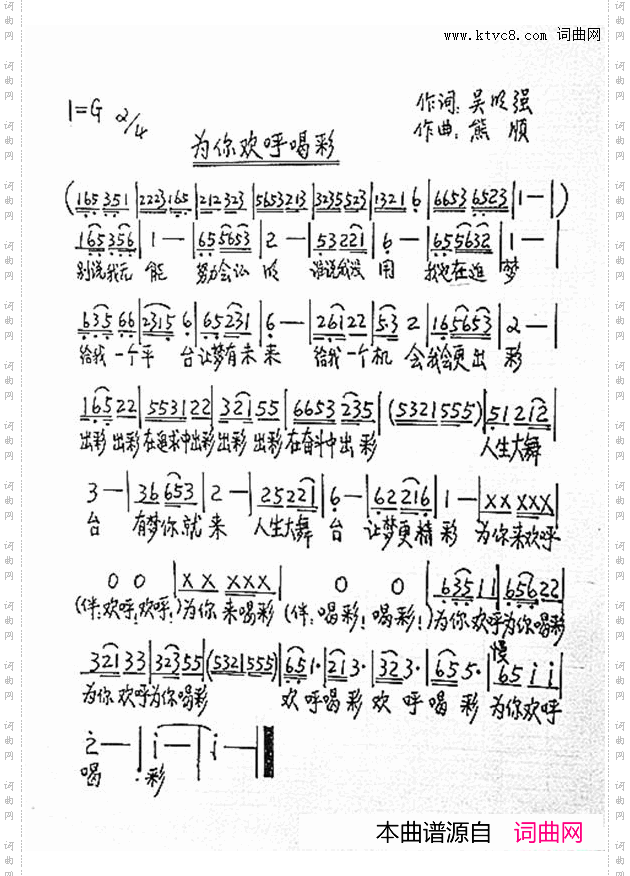 www.ktvc8.com 词曲网
1=G 2/4
作词:吴明强
作曲:熊 顺
为你欢呼喝彩
(165 351|2223 165|212 323|5653213|3235523|1321 6|6653 6523|1—|)
165356|1—|655653|2—|53221|6—|655632|1—|
别说我无能 努力会认的 谁说我没用 我也在追梦
635 66|2315 6|65 231|6.—|26122|53 2|165653|2—|
给我一个平台让梦有未来 给我一个机会我会更出彩
165 22|553122|321 55|6653 235|(5321555)|51 212|
出彩 出彩在追求中出彩出彩 出彩在奋斗中出彩 人生大舞
3—|36 653|2—|25221|6—|62 216|1—|XX XXX|
台 有梦你就来 人生大舞台 让梦更精彩 为你来欢呼
0 0|X X XXX|0 0|635 11|65622|
(伴:欢呼!欢呼!)为你来喝彩(伴:喝彩!喝彩!)为你欢呼为你喝彩
慢
321 33|32355|(5321555)|651·|213·|323·|655·|65 i i|
为你欢呼为你喝彩 欢呼喝彩欢呼喝彩为你欢呼
2—|i—|i—|
喝彩
本曲谱源自 词曲网